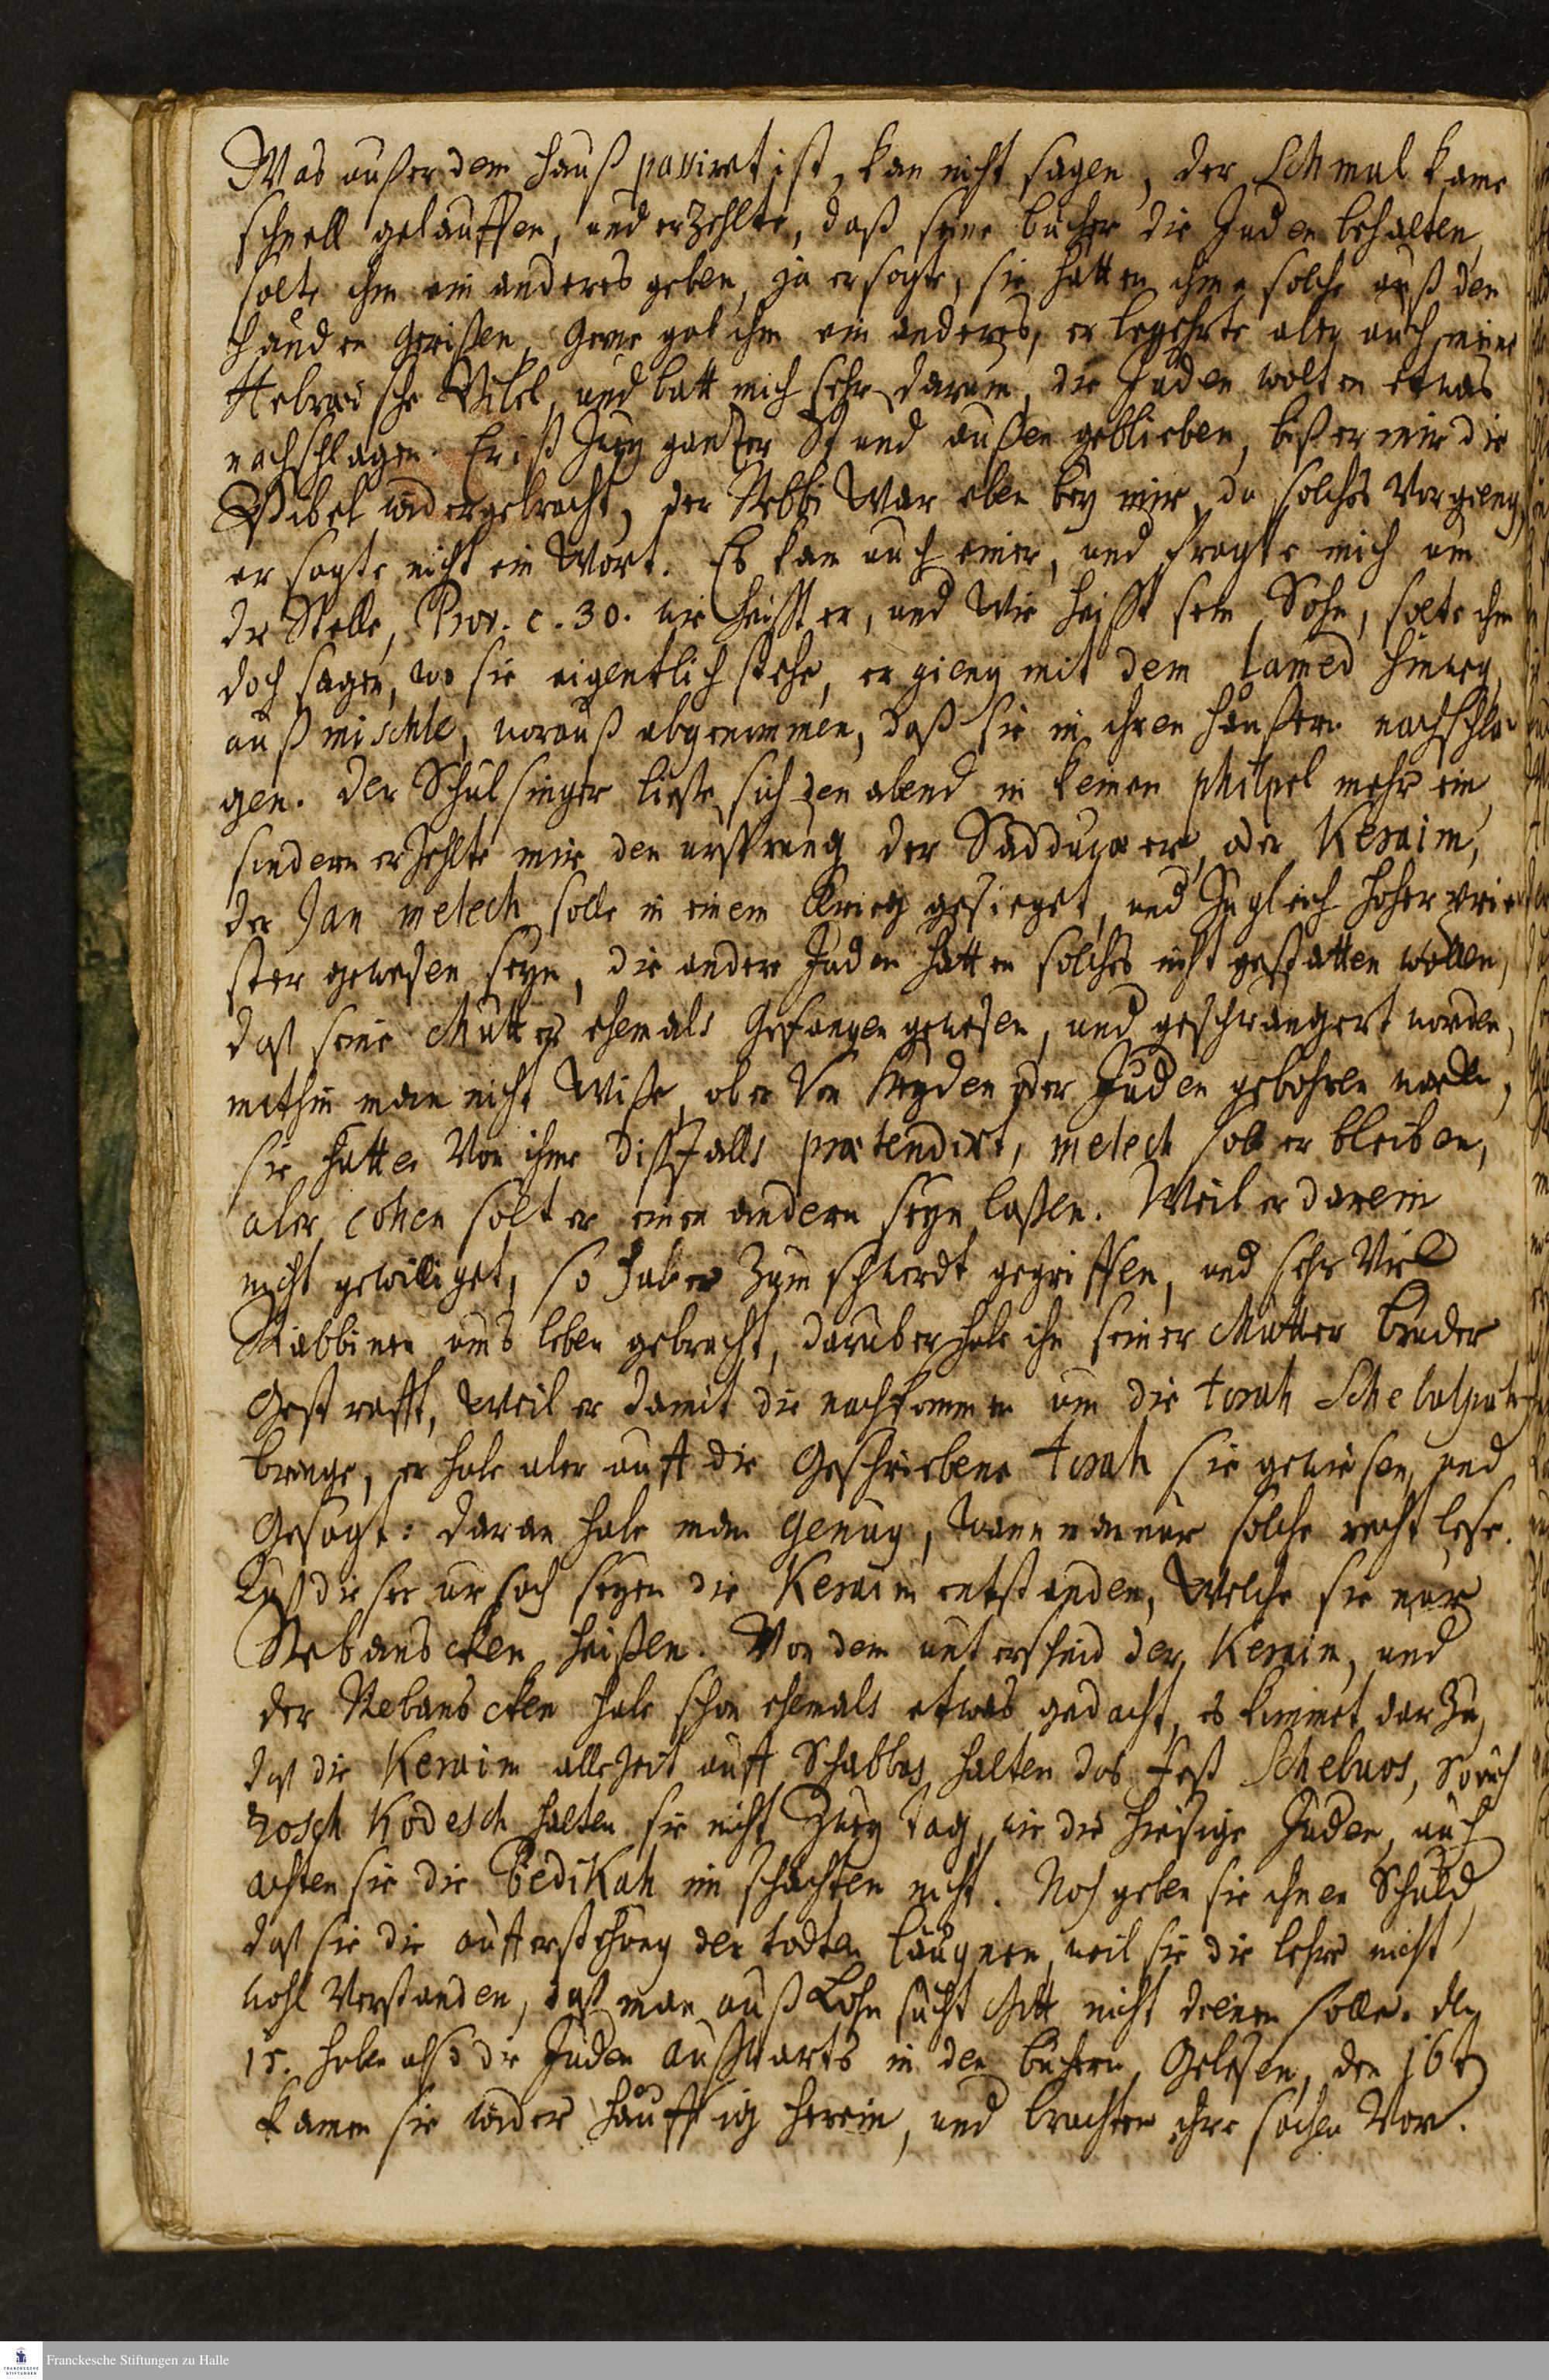 Was außer dem Hauß passiret ist, kan nicht sagen, der Schmul kame
schnell gelauffen, und erzehlte, daß seine bücher die Juden behalten,
solte ihm ein anderes geben, ja er sagte, sie hätten ihme solche auß den
Händen gerißen, Gerne gab ihm ein anderes, er begehrte aber auch meine
Hebräische Bibel, und batt mich sehr darum, die Juden wolten etwas
nachschlagen. Er ist zwey gantzer Stund außen geblieben, biß er mir die
Bibel widergebracht, der Rebbi War eben bey mir, da solches Vorgieng,
er sagte nicht ein Wort. Es kam auch einer, und fragte mich um
die Stelle, Prov. c. 30. wie heisst er, und Wie heisst sein Sohn, solte ihm
doch sagen, wo sie eigentlich stehe, er gieng mit dem lamed hinweg,
auß mischle, worauß abgenommen, daß sie in ihren Häußern nachschla
gen. Der Schulsinger ließe sich den abend in keinen philpel mehr ein,
sondern erzehlte mir den ursprung der Sadducaeer, oder Keraim,
der Jan melech solle in einem Krieg gesieget, und zugleich hoher prie
ster gewesen seyn, die andere Juden hätten solches nicht gestatten wollen,
daß seine Mutter ehemals Gefangen gewesen, und geschwängert worden,
mithin man nicht Wiße, ob er Von Heyden oder Juden gebohren worden,
sie hatten Von ihme dißfalls praetendirt, melech soll er bleiben,
aber cohen solt er einen andern seyn laßen. Weil er darein
nicht gewilliget, so hab er zum schwerdt gegriffen, und sehr Viel
Rabbinen ums leben gebracht, darüber habe ihn seiner Mutter bruder
Gestrafft, Weil er damit die nachkommen um die torah Schebalpah
bringe, er habe aber auff die Geschriebene torah sie gewiesen, und
Gesagt: daran habe man genug, Wann man nur solche recht lese.
Auß dieser ursach seyen die Keraim entstanden, Welche sie nur
Rebanscken heißen. Von dem unterscheid der Keraim, und
der Rebanscken habe schon ehemals etwas gedacht, es kommet darzu,
daß die Keraim allezeit auff Schabbas halten das Fest Schebuos, so auch
rosch Kodesch halten sie nicht zwey tag, wie die hiesige Juden, auch
achten sie die Bedikah im schächten nicht. Noch geben sie ihnen Schuld,
daß sie die aufferstehung der todten läugnen, weil sie die lehre nicht
wohl Verstanden, daß man auß Lohn sucht Gott nicht dienen solle. den
15. haben also die Juden außwarts in den büchern Gelesen, den 16ten
kamen sie wider häuffig herein, und brachten ihre sachen Vor.
Franckesche Stiftungen zu Halle